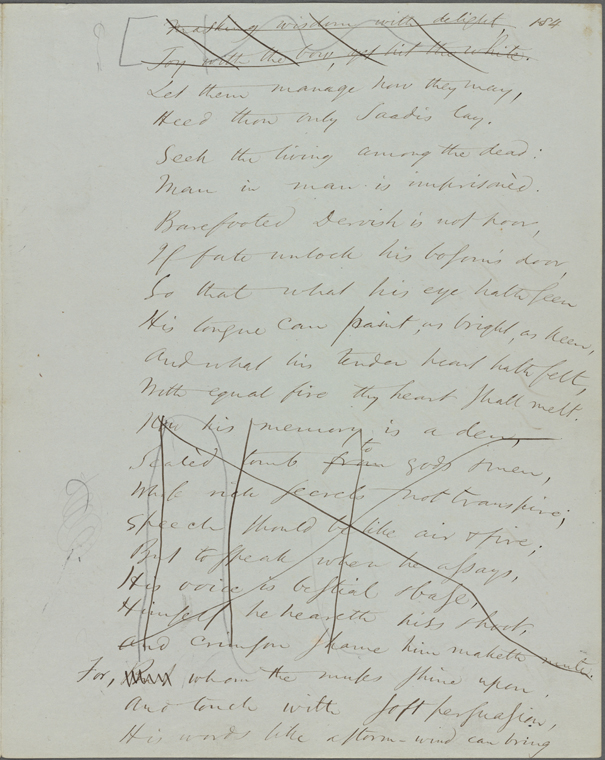 Mating wisdom with delight, 154
Toy with the bow, yet hit the white.
Let them manage how they may,
Heed thou only Saadi's lay.
Seek the living among the dead:
Man in man is imprisoned.
Barefooted Dervish is not poor,
If fate unlock his bosom's door,
So that what his eye hath seen
His tongue can paint, as bright, as keen,
And what his tender heart hath felt,
With equal fire thy heart shall melt.
Now his memory is a den,
Sealed tomb from to gods & men,
Whose rich secrets not transpire;
Speech should be like air & fire;
But to speak when he assays,
His voice is bestial & base,
Himself he heareth hiss & hoot,
And crimson shame him maketh mute.
For, whom the muses shine upon,
And touch with soft persuasion,
His words like a storm-wind can bring